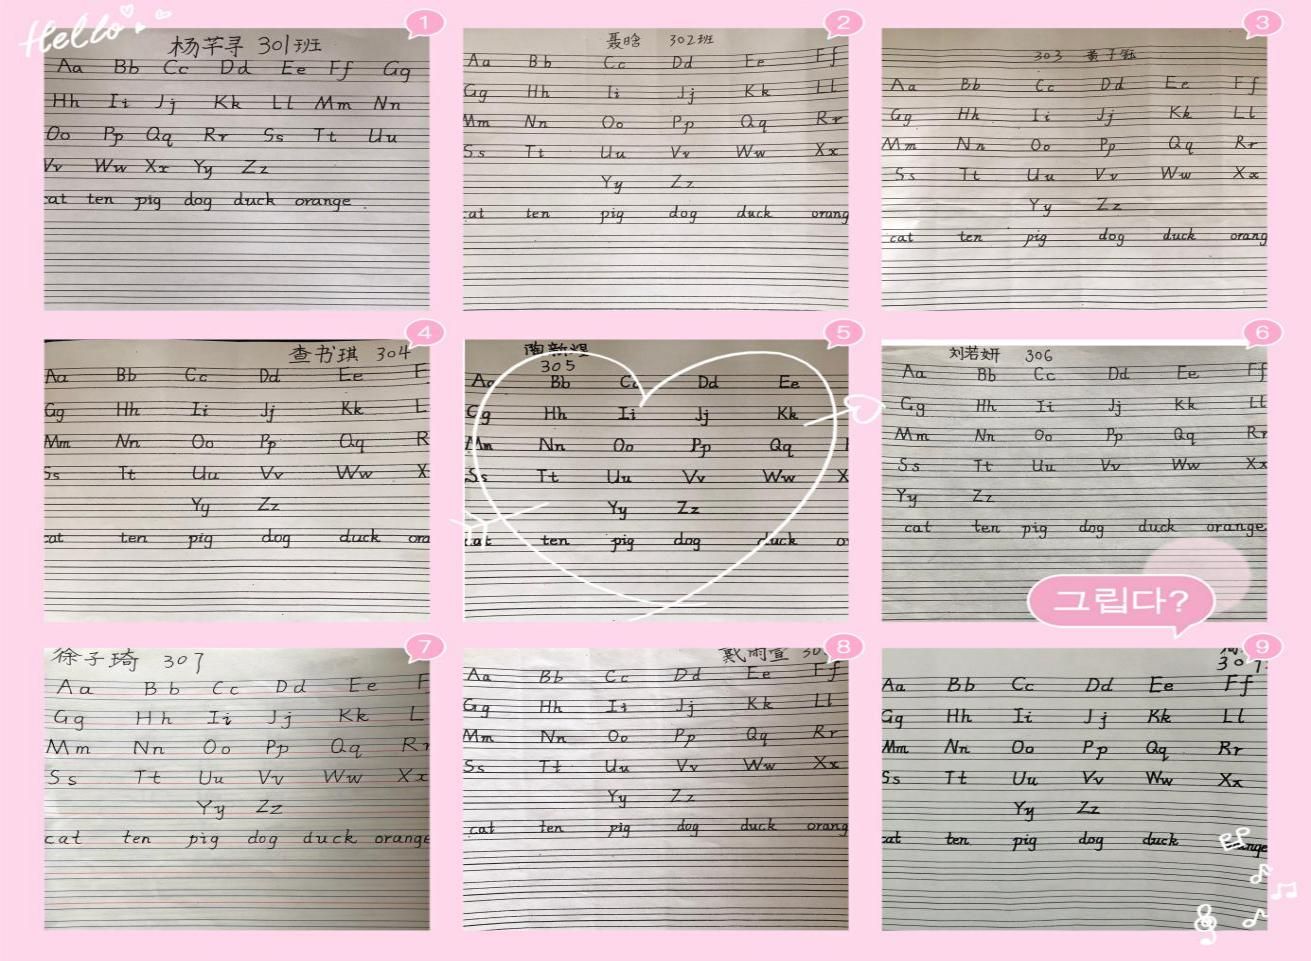 Hello
1
杨芊寻 301班
Aa Bb Cc Dd Ee Ff Gg
Hh Ii Jj Kk Ll Mm Nn
Oo Pp Qq Rr Ss Tt Uu
Vv Ww Xx Yy Zz
cat ten pig dog duck orange
2
聂晗 302班
Aa Bb Cc Dd Ee Ff
Gg Hh Ii Jj Kk Ll
Mm Nn Oo Pp Qq Rr
Ss Tt Uu Vv Ww Xx
Yy Zz
cat ten pig dog duck orang
3
303 黄子钰
Aa Bb Cc Dd Ee Ff
Gg Hh Ii Jj Kk Ll
Mm Nn Oo Pp Qq Rr
Ss Tt Uu Vv Ww Xx
Yy Zz
cat ten pig dog duck orang
4
查书琪 304
Aa Bb Cc Dd Ee F
Gg Hh Ii Jj Kk L
Mm Nn Oo Pp Qq R
Ss Tt Uu Vv Ww X
Yy Zz
cat ten pig dog duck ora
5
陶新煜
305
Aa Bb Cc Dd Ee
Gg Hh Ii Jj Kk
Mm Nn Oo Pp Qq
Ss Tt Uu Vv Ww X
Yy Zz
cat ten pig dog duck o
6
刘若妍 306
Aa Bb Cc Dd Ee Ff
Gg Hh Ii Jj Kk Ll
Mm Nn Oo Pp Qq Rr
Ss Tt Uu Vv Ww Xx
Yy Zz
cat ten pig dog duck orange
그립다?
7
徐子琦 307
Aa Bb Cc Dd Ee F
Gg Hh Ii Jj Kk L
Mm Nn Oo Pp Qq Rr
Ss Tt Uu Vv Ww Xx
Yy Zz
cat ten pig dog duck orange
8
戴雨萱 30
Aa Bb Cc Dd Ee Ff
Gg Hh Ii Jj Kk Ll
Mm Nn Oo Pp Qq Rr
Ss Tt Uu Vv Ww Xx
Yy Zz
cat ten pig dog duck orang
9
Aa Bb Cc Dd Ee Ff
Gg Hh Ii Jj Kk Ll
Mm Nn Oo Pp Qq Rr
Ss Tt Uu Vv Ww Xx
Yy Zz
cat ten pig dog duck ange